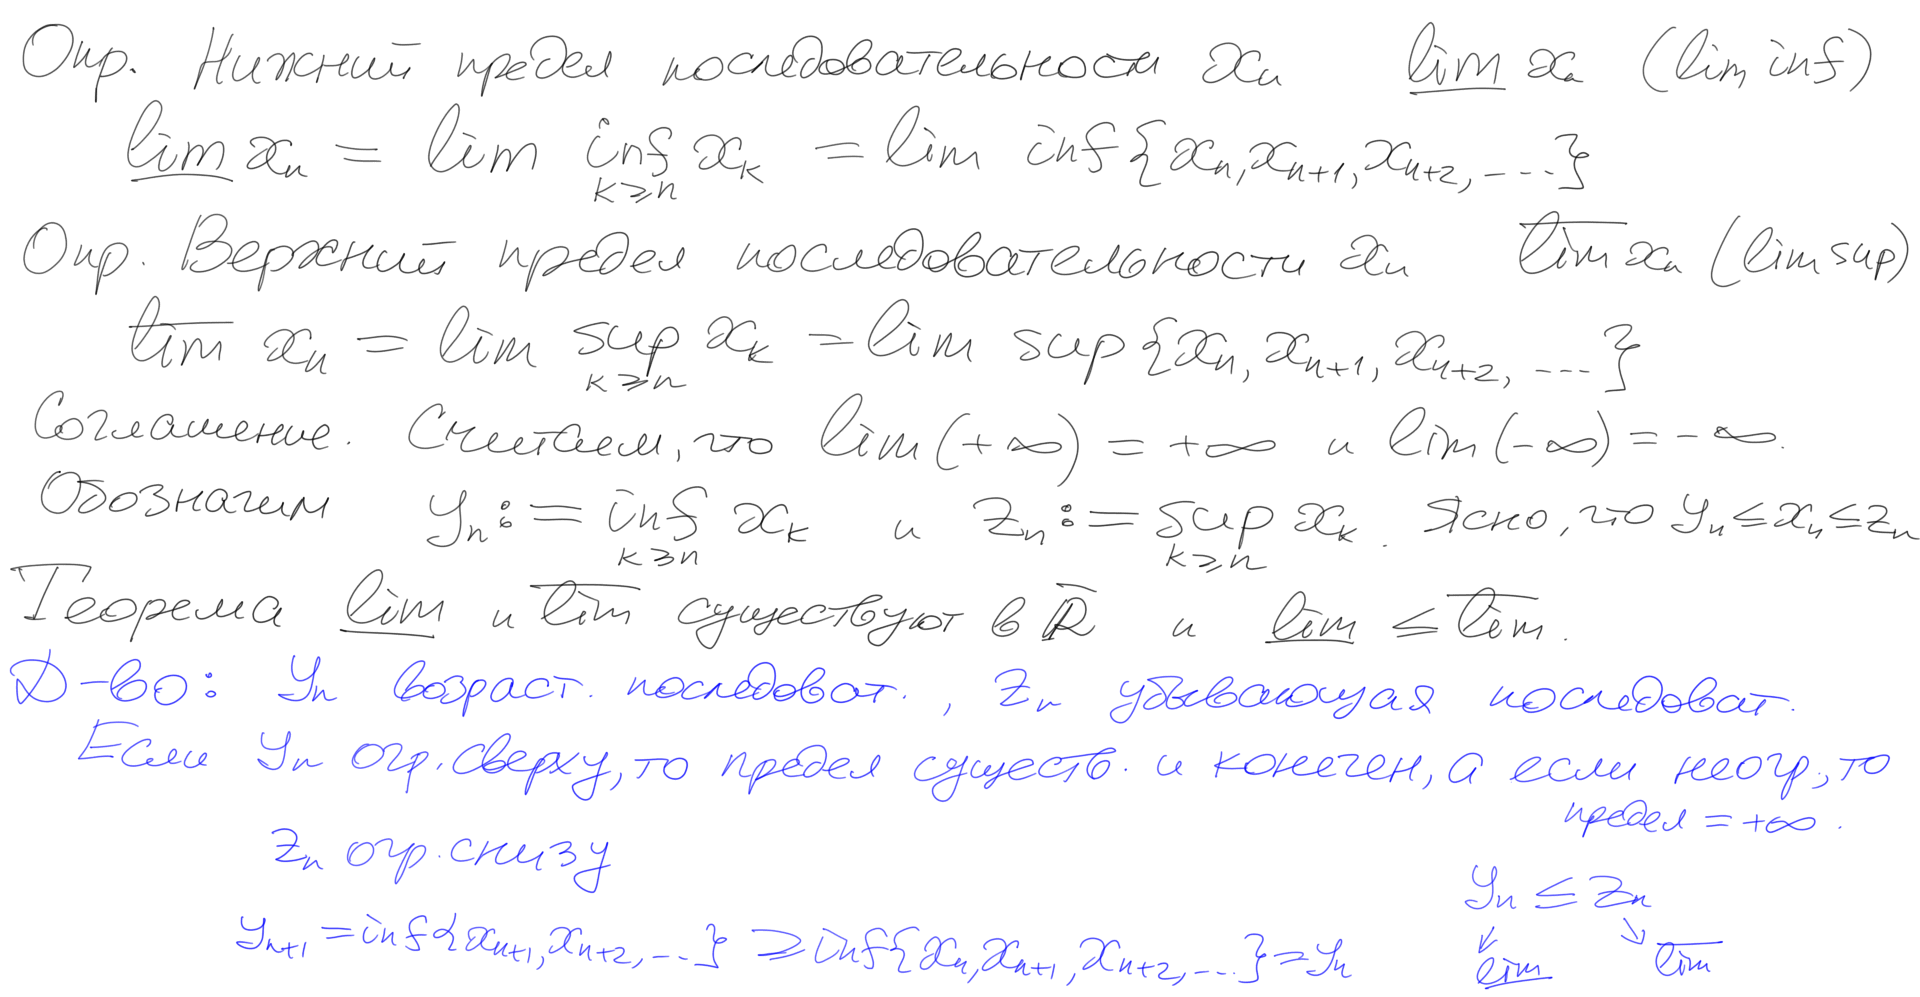 Опр. Нижний предел последовательности xₙ  l̲i̲m̲ xₙ (lim inf)
l̲i̲m̲ xₙ = lim inf_{k≥n} x_k = lim inf{xₙ, xₙ₊₁, xₙ₊₂, ....}
Опр. Верхний предел последовательности xₙ  l̅i̅m̅ xₙ (lim sup)
l̅i̅m̅ xₙ = lim sup_{k≥n} x_k = lim sup{xₙ, xₙ₊₁, xₙ₊₂, ....}
Соглашение. Считаем, что lim(+∞) = +∞ и lim(-∞) = -∞.
Обозначим yₙ := inf_{k≥n} x_k и zₙ := sup_{k≥n} x_k. Ясно, что yₙ ≤ xₙ ≤ zₙ
Теорема l̲i̲m̲ и l̅i̅m̅ существуют в R̅ и l̲i̲m̲ ≤ l̅i̅m̅.
Д-во: yₙ возраст. последоват., zₙ убывающая последоват.
Если yₙ огр. сверху, то предел существ. и конечен, а если неогр., то
предел = +∞.
zₙ огр. снизу
yₙ ≤ zₙ
yₙ₊₁ = inf{xₙ₊₁, xₙ₊₂, ...} ≥ inf{xₙ, xₙ₊₁, xₙ₊₂, ...} = yₙ
↙ ↘
l̲i̲m̲ l̅i̅m̅